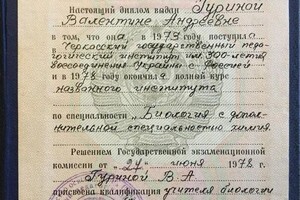 Настоящий диплом выдан Гуриной
Валентине Андреевне
в том, что она в 1973 году поступила в
Черкасский государственный педа-
гогический институт им. 300-летия
Воссоединения Украины с Россией
и в 1978 году окончила полный курс
названного института
по специальности „Биология с допол-
нительной специальностью химия.
Решением Государственной экзаменационной
комиссии от "27" июня 1978 г.
Гуриной В. А.
присвоена квалификация учителя биологии